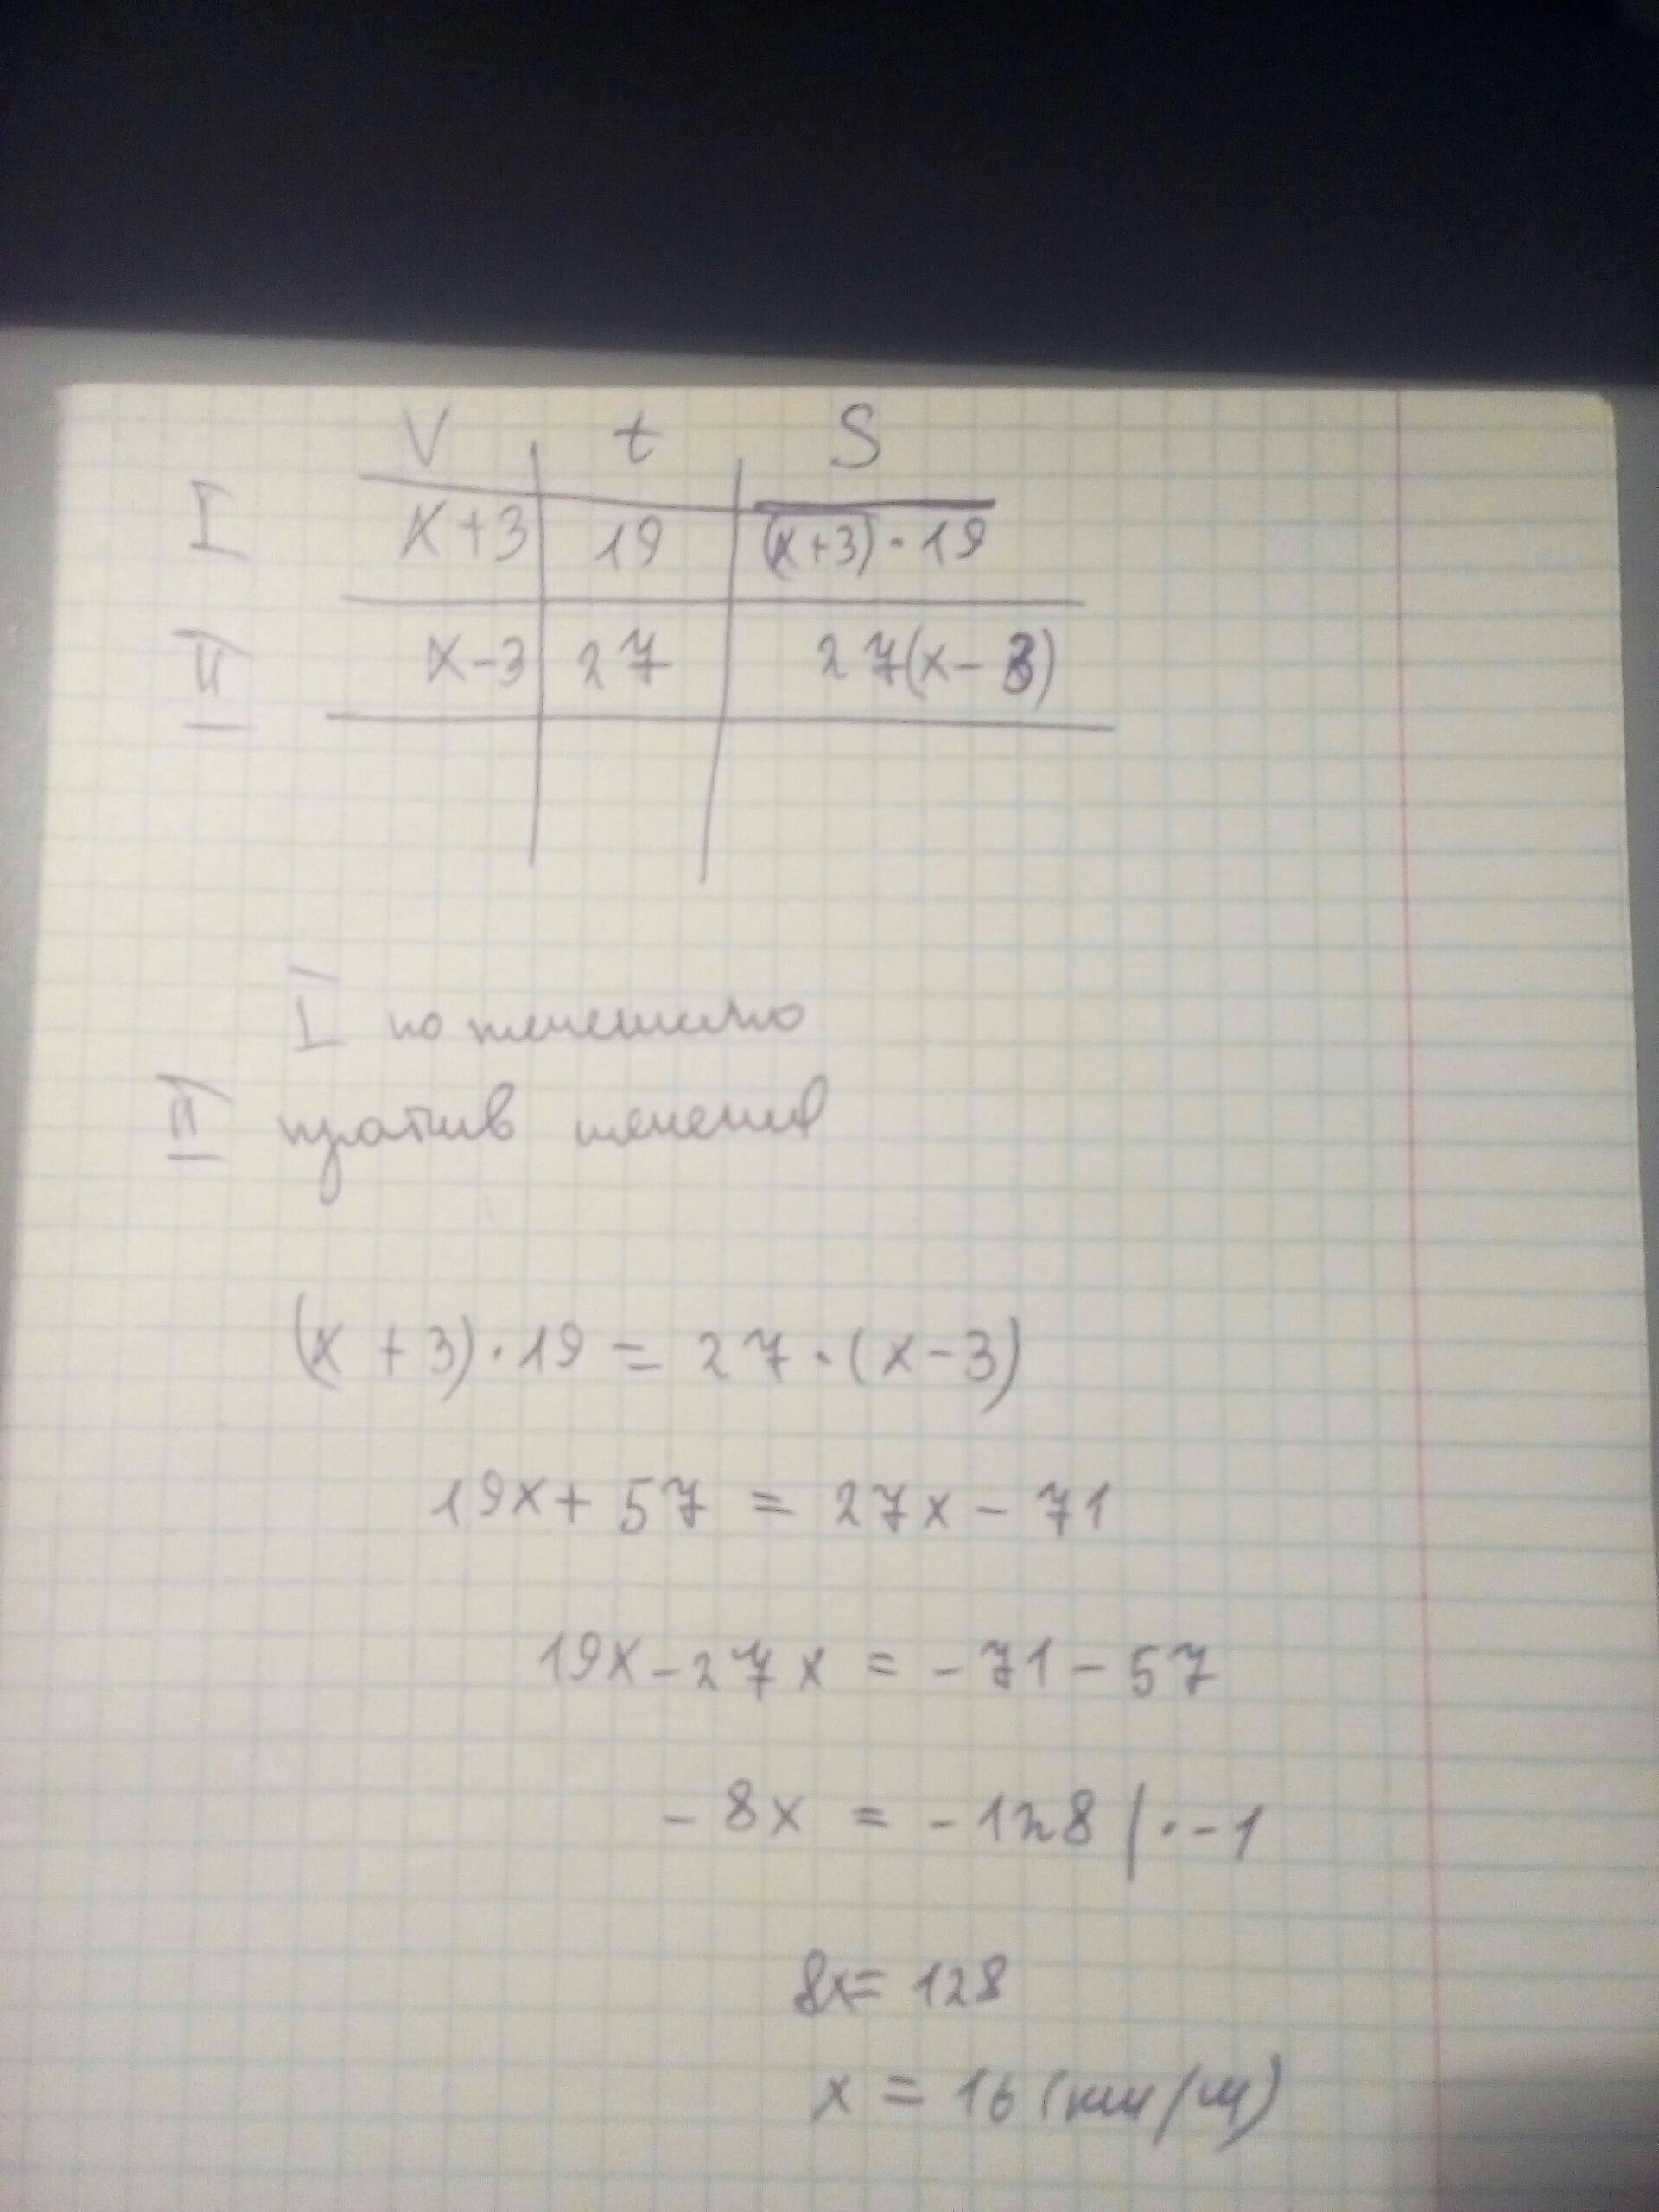 V t S
I x+3 19 (x+3)·19
II x-3 27 27(x-3)
I по течению
II против течения
(x+3)·19 = 27·(x-3)
19x+57 = 27x-71
19x-27x = -71-57
-8x = -128 |·-1
8x=128
x = 16 (км/ч)